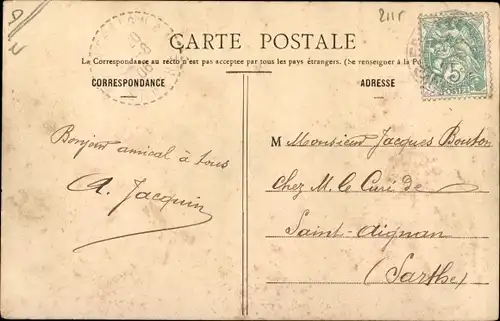 211r
CARTE POSTALE
La Correspondance au recto n'est pas acceptée par tous les pays étrangers. (Se renseigner à la
CORRESPONDANCE
ADRESSE
5
Bonjour amical à tous
A. Jacquin
M Monsieur Jacques Bouton
Chez M. le Curé de
Saint-Aignan
(Sarthe)